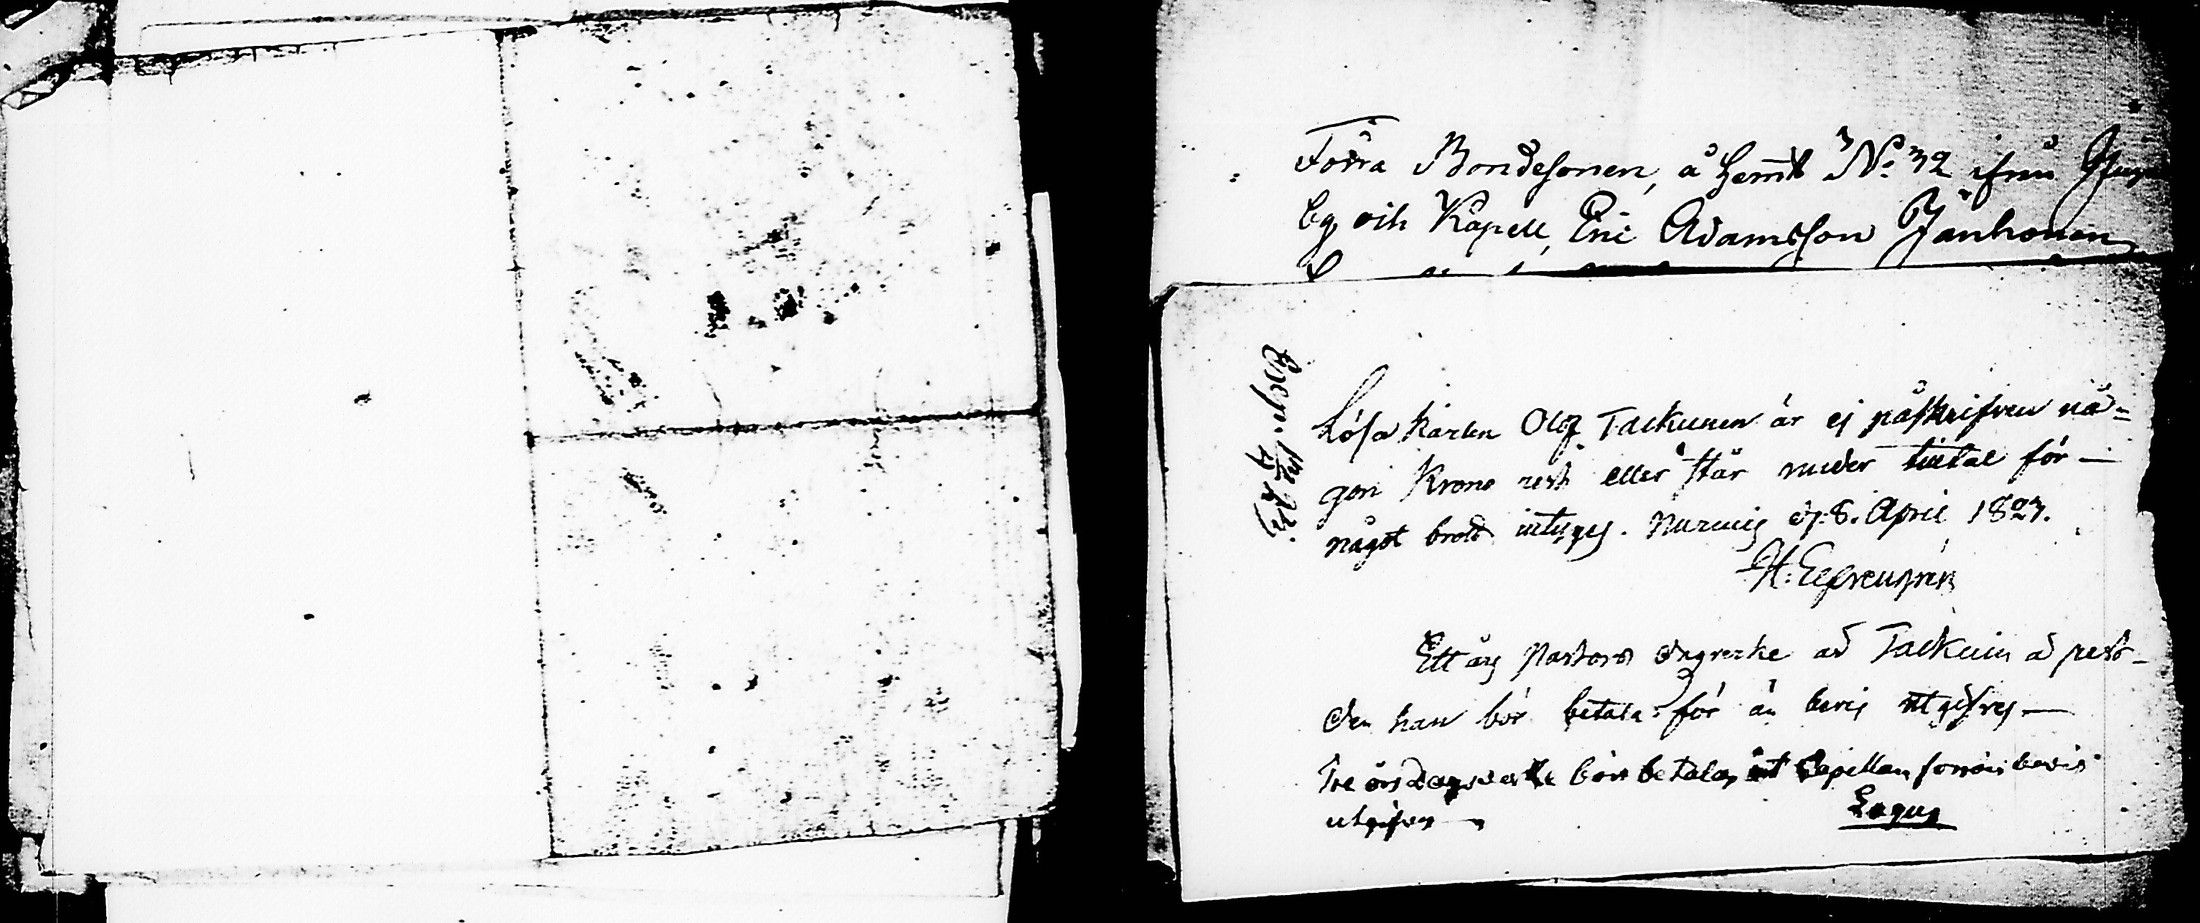 Förra Bondesonen, å Hemt No: 32 ifrån
by och Kapell, Eric Adamsson Jänhonen
Lösa karlen Olof Tackunen är ej påskrifven nå=
gon Krono rest eller står under tiltal för —
något brott intygas. Nurmis d: 8. April 1823.
Ett års Pastors dagsverke är Tackuin å rest —
den han bör betala för än bevis utgifves —
Tre års dagsverke bör betalas åt Capellan förrän bevis
utgifves —
Lagus